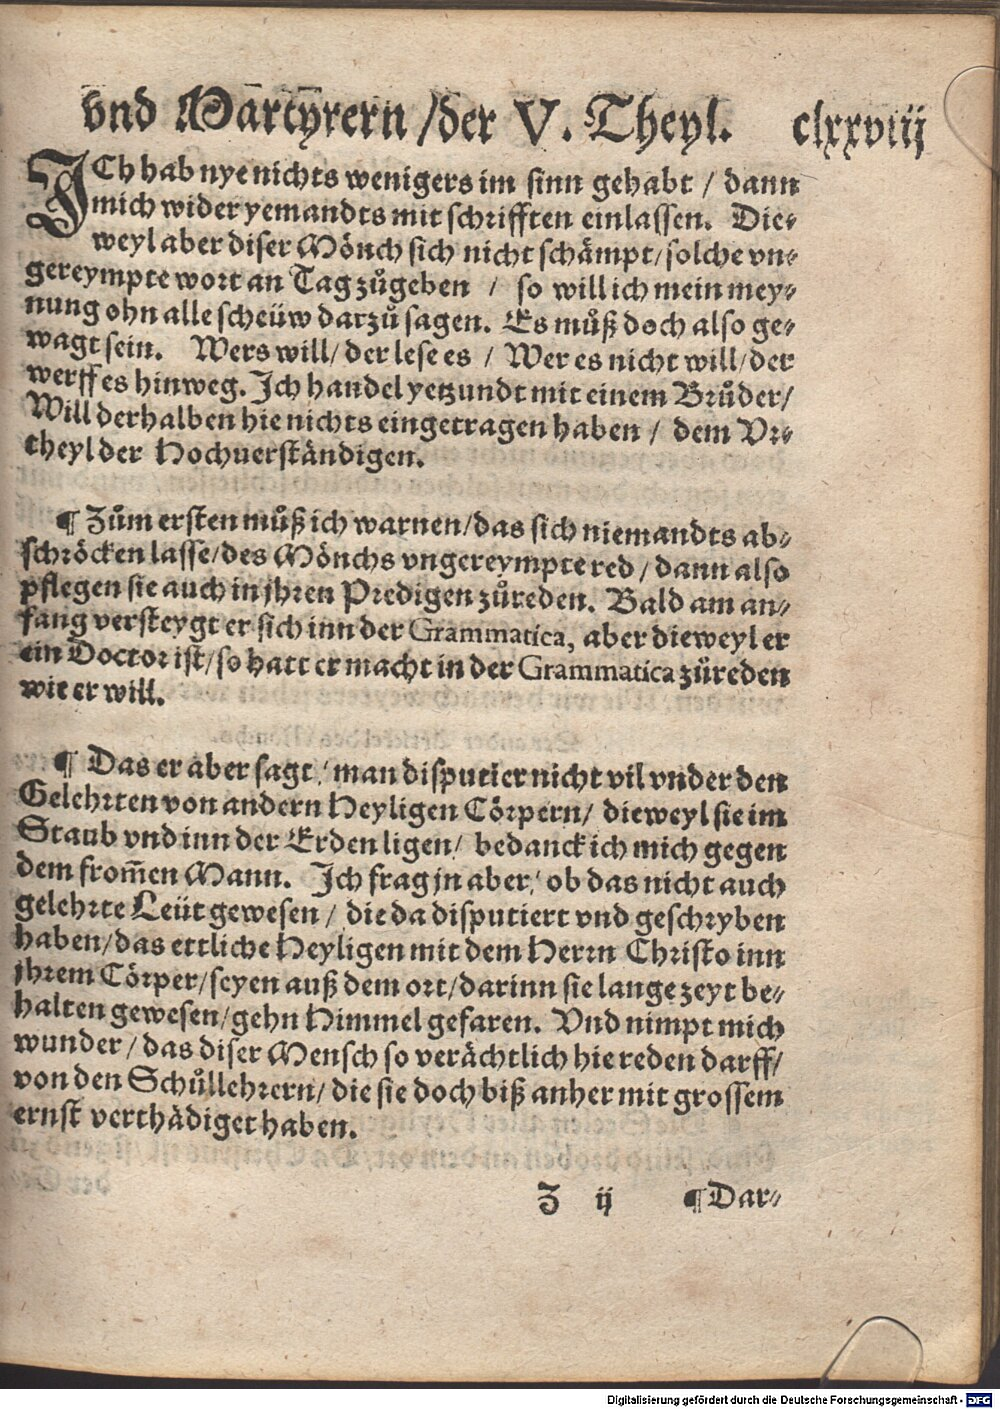 vnd Martyrern /der V. Theyl. clxxviij
ICh hab nye nichts wenigers im sinn gehabt / dann
mich wider yemandts mit schrifften einlassen. Die⸗
weyl aber diser Mönch sich nicht schämpt/ solche vn⸗
gereympte wort an Tag zůgeben / so will ich mein mey⸗
nung ohn alle scheüw darzů sagen. Es můß doch also ge⸗
wagt sein. Wers will/ der lese es / Wer es nicht will/ der
werff es hinweg. Ich handel yetzundt mit einem Brůder/
Will derhalben hie nichts eingetragen haben / dem Vr⸗
theyl der Hochuerständigen.
¶ Zům ersten můß ich warnen/das sich niemandts ab⸗
schröcken lasse/des Mönchs vngereympte red / dann also
pflegen sie auch in jhren Predigen zůreden. Bald am an⸗
fang versteygt er sich inn der Grammatica, aber dieweyl er
ein Doctor ist/so hatt er macht in der Grammatica zůreden
wie er will.
¶ Das er aber sagt/ man disputier nicht vil vnder den
Gelehrten von andern Heyligen Cörpern/ dieweyl sie im
Staub vnd inn der Erden ligen/ bedanck ich mich gegen
dem from̃en Mann. Ich frag jn aber/ ob das nicht auch
gelehrte Leüt gewesen / die da disputiert vnd geschryben
haben/das ettliche Heyligen mit dem Herrn Christo inn
jhrem Cörper/seyen auß dem ort/darinn sie lange zeyt be⸗
halten gewesen/gehn Himmel gefaren. Vnd nimpt mich
wunder / das diser Mensch so verächtlich hie reden darff/
von den Schůllehrern/ die sie doch biß anher mit grossem
ernst verthädiget haben.
Z ij ¶Dar⸗
Digitalisierung gefördert durch die Deutsche Forschungsgemeinschaft - DFG